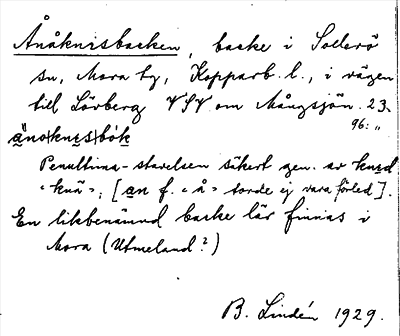 Ånåknisbacken, backe i Sollerö
sn, Mora tg, Kopparb. l., i vägen
till Lövberg VSV om Mångsjön. 23.
96: „
Penultima-stavelsen säkert gen. av
"knä"; [an f. "å" torde ej vara förled].
En likbenämnd backe lär finnas i
Mora (Utmeland?)
B. Lindén 1929.